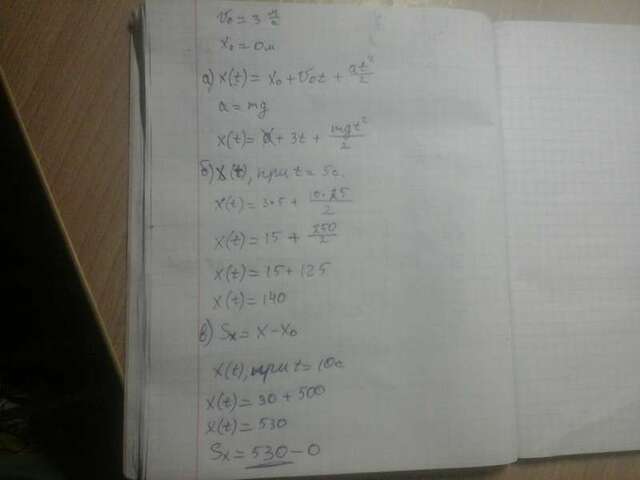 v₀ = 3 м/с
x₀ = 0 м
а) x(t) = x₀ + v₀t + at²/2
a = mg
x(t) = 0 + 3t + mgt²/2
б) x(t), при t = 5с.
x(t) = 3·5 + 10·25/2
x(t) = 15 + 250/2
x(t) = 15 + 125
x(t) = 140
в) Sx = x - x₀
x(t), при t = 10с
x(t) = 30 + 500
x(t) = 530
Sx = 530 - 0